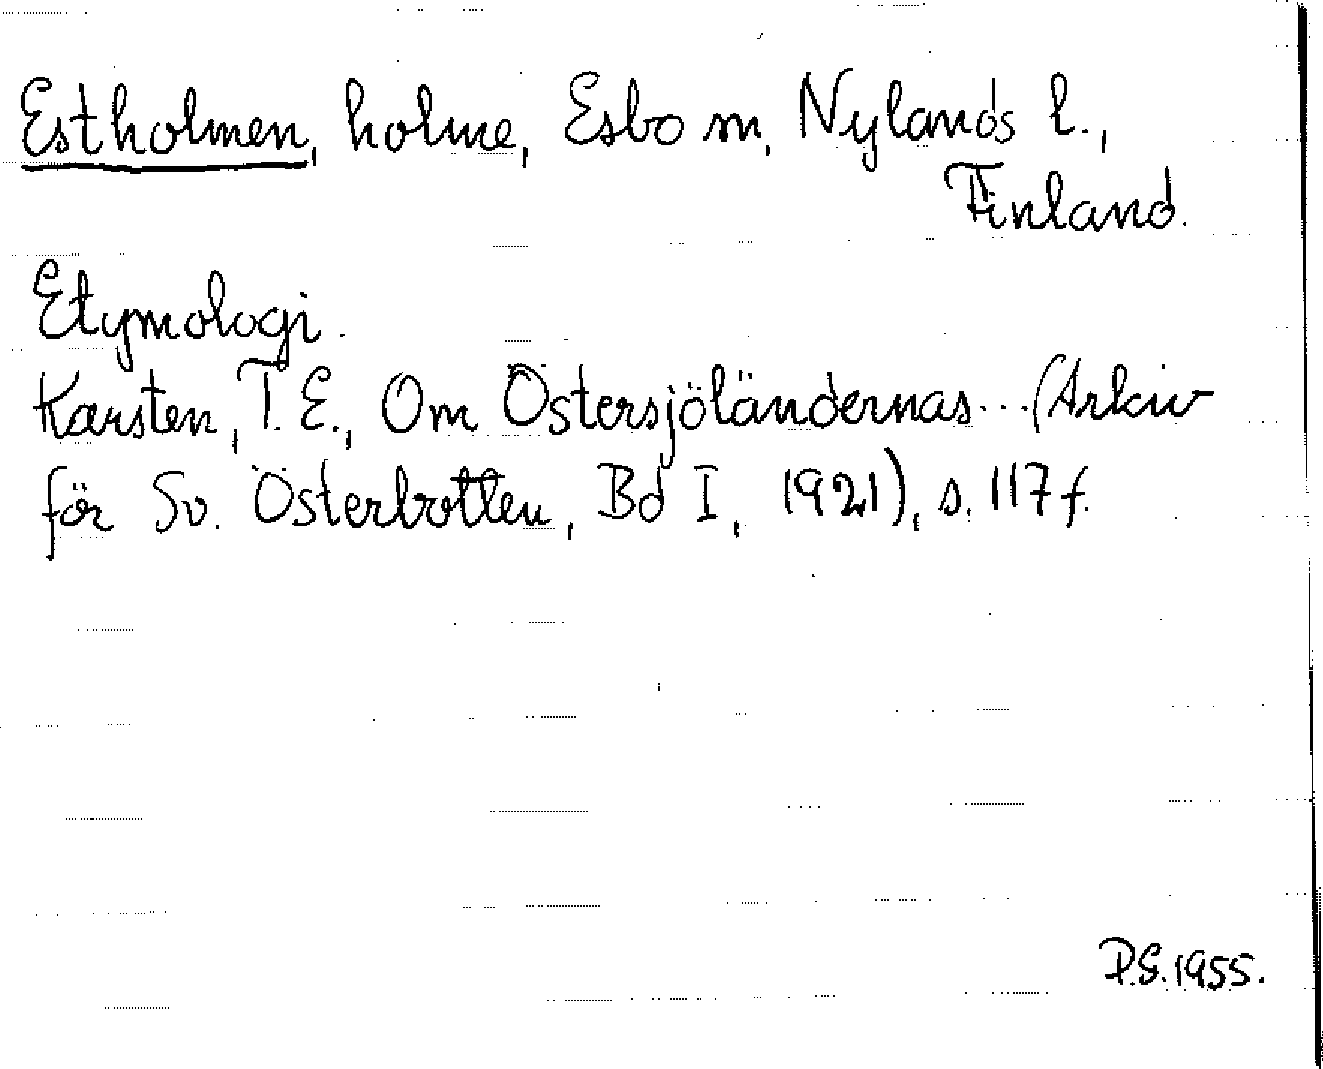 Estholmen, holme, Esbo sn, Nylands l.,
Finland.
Etymologi.
Karsten, T. E., Om Östersjöländernas... (Arkiv
för Sv. Österbotten, Bd I, 1921), s. 117 f.
P.S. 1955.